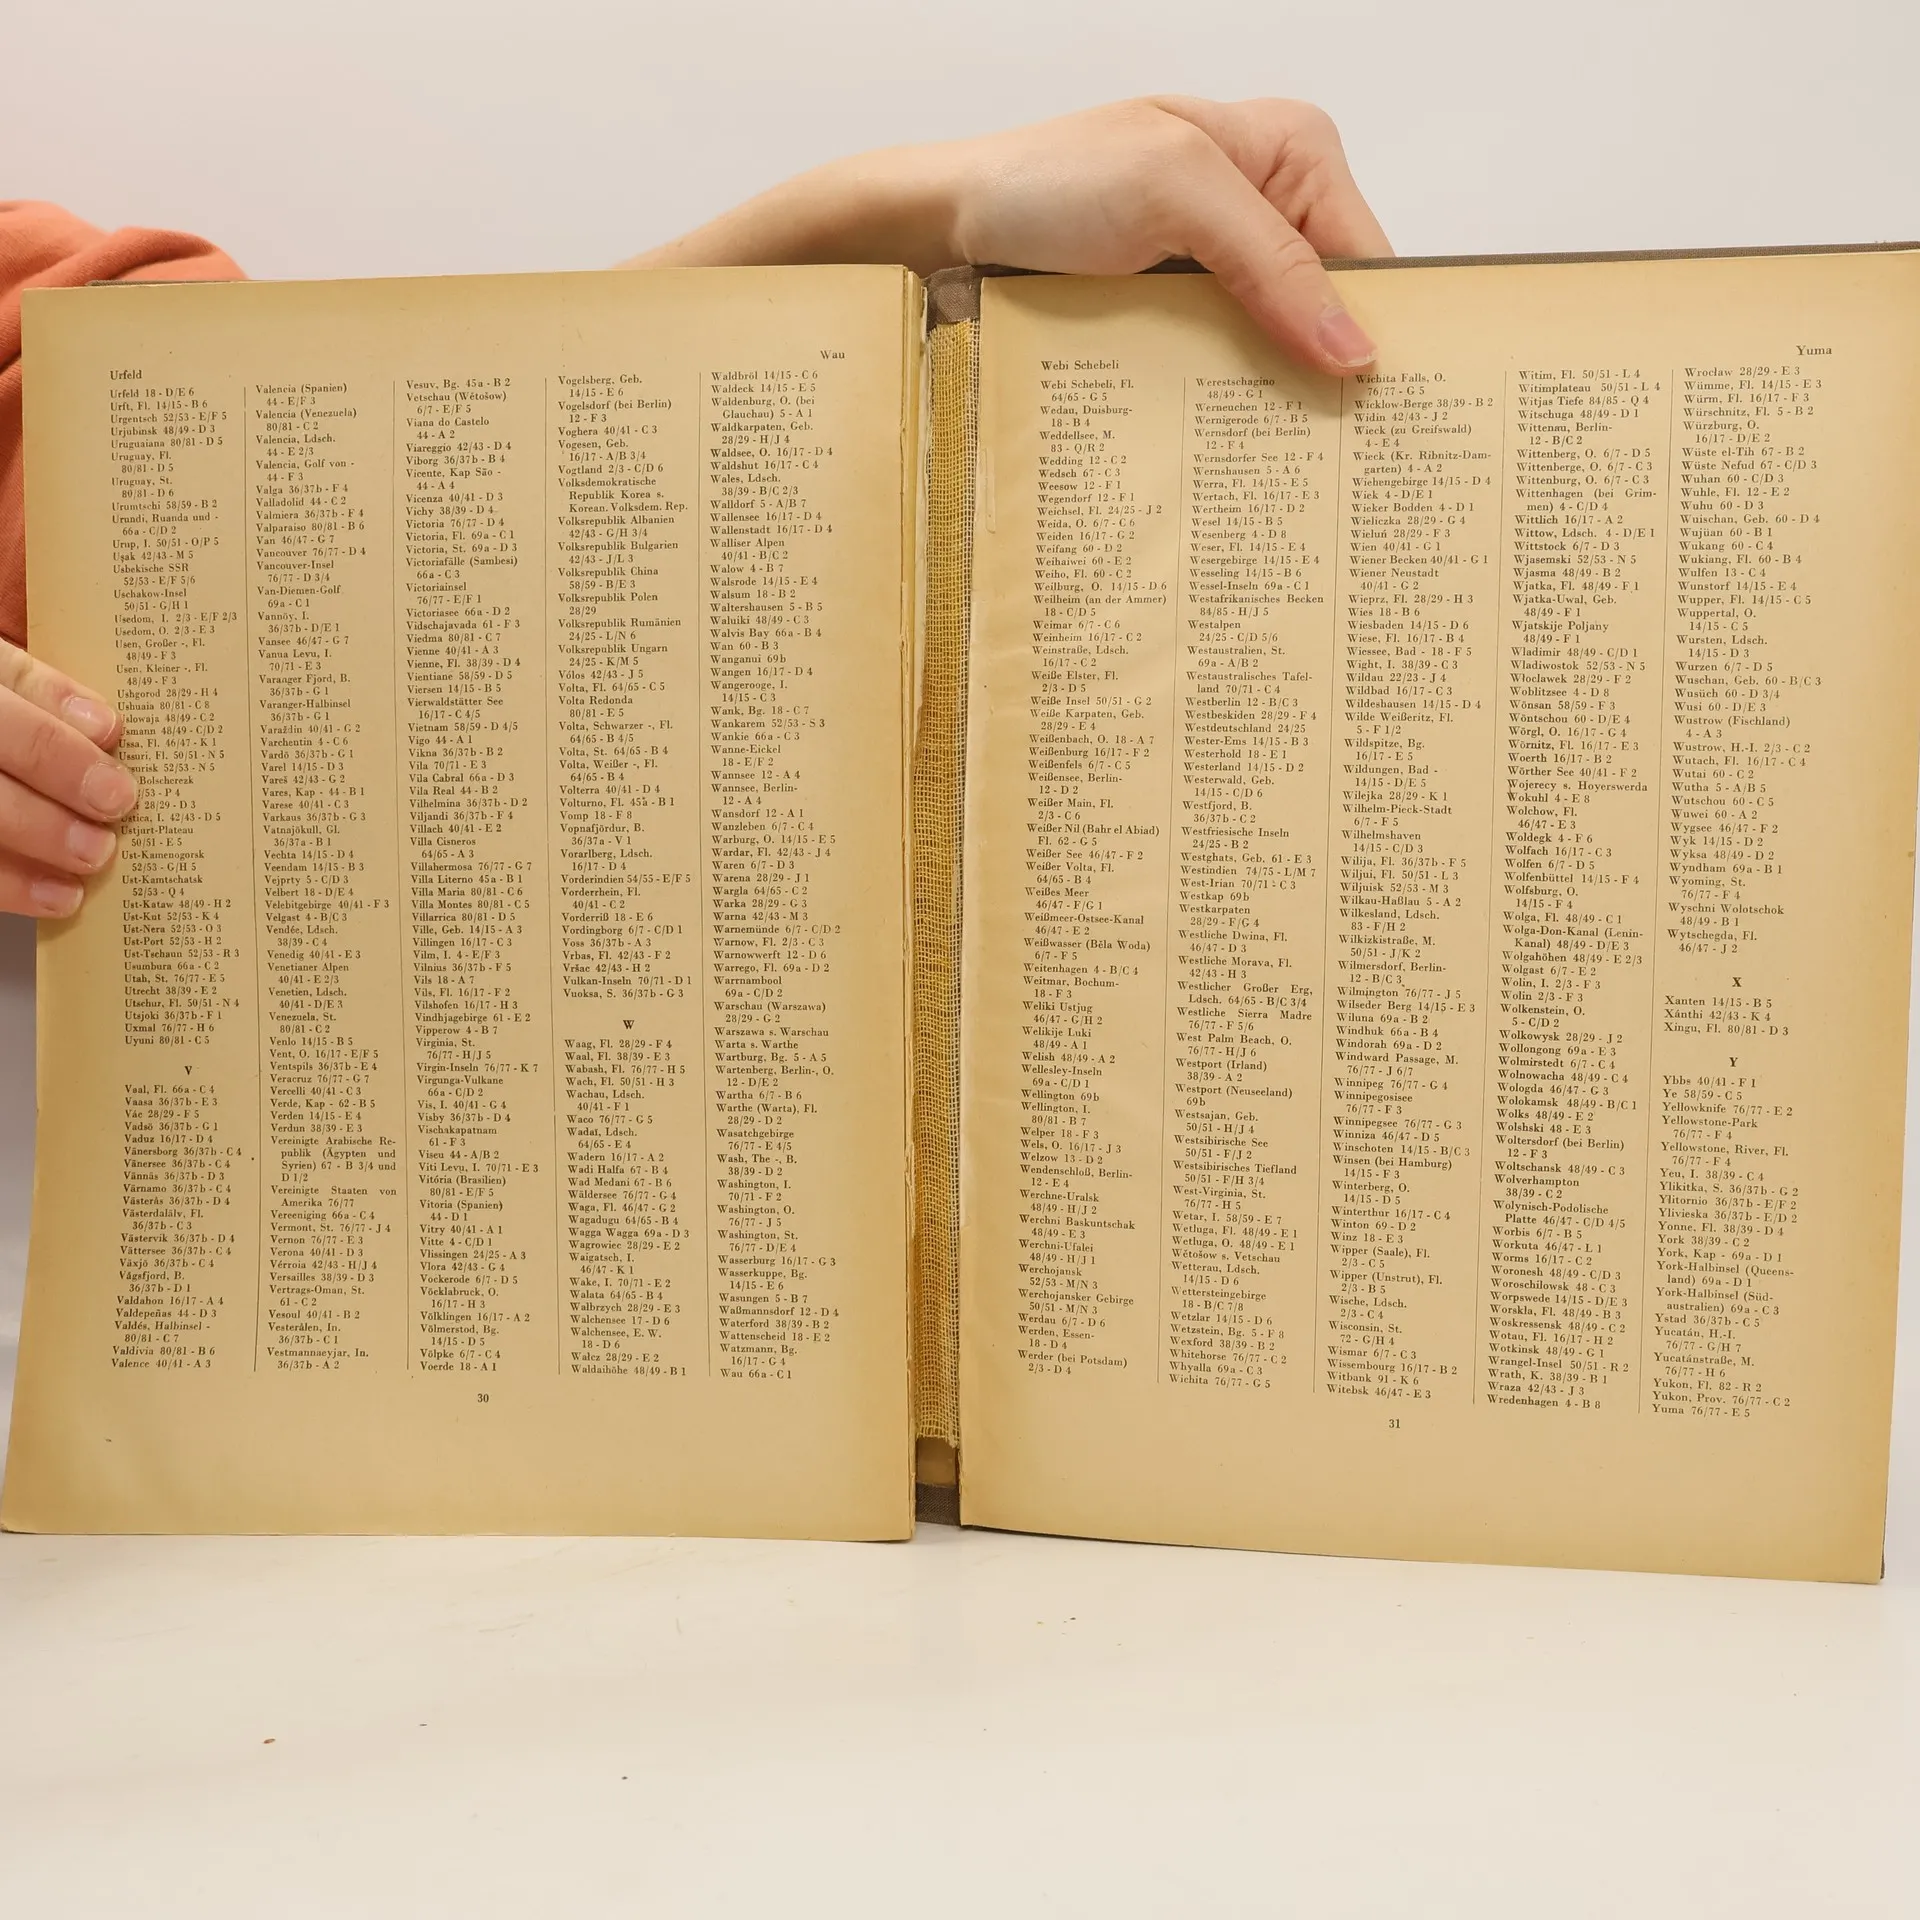 Urfeld
Wau
Urfeld 18 - D/E 6
Urft, Fl. 14/15 - B 6
Urgentsch 52/53 - E/F 5
Urjubinsk 48/49 - D 3
Uruguaiana 80/81 - D 5
Uruguay, Fl.
80/81 - D 5
Uruguay, St.
80/81 - D 6
Urumtschi 58/59 - B 2
Urundi, Ruanda und -
66a - C/D 2
Urup, I. 50/51 - O/P 5
Uşak 42/43 - M 5
Usbekische SSR
52/53 - E/F 5/6
Uschakow-Insel
50/51 - G/H 1
Usedom, I. 2/3 - E/F 2/3
Usedom, O. 2/3 - E 3
Usen, Großer -, Fl.
48/49 - F 3
Usen, Kleiner -, Fl.
48/49 - F 3
Ushgorod 28/29 - H 4
Ushuaia 80/81 - C 8
Uslowaja 48/49 - C 2
Usmann 48/49 - C/D 2
Ussa, Fl. 46/47 - K 1
Ussuri, Fl. 50/51 - N 5
52/53 - N 5
Bolscherezk
/53 - P 4
28/29 - D 3
Ustica, I. 42/43 - D 5
Ustjurt-Plateau
50/51 - E 5
Ust-Kamenogorsk
52/53 - G/H 5
Ust-Kamtschatsk
52/53 - Q 4
Ust-Kataw 48/49 - H 2
Ust-Kut 52/53 - K 4
Ust-Nera 52/53 - O 3
Ust-Port 52/53 - H 2
Ust-Tschaun 52/53 - R 3
Usumbura 66a - C 2
Utah, St. 76/77 - E 5
Utrecht 38/39 - E 2
Utschur, Fl. 50/51 - N 4
Utsjoki 36/37b - F 1
Uxmal 76/77 - H 6
Uyuni 80/81 - C 5
V
Vaal, Fl. 66a - C 4
Vaasa 36/37b - E 3
Vác 28/29 - F 5
Vadsö 36/37b - G 1
Vaduz 16/17 - D 4
Vänersborg 36/37b - C 4
Vänersee 36/37b - C 4
Vännäs 36/37b - D 3
Värnamo 36/37b - C 4
Västerås 36/37b - D 4
Västerdalälv, Fl.
36/37b - C 3
Västervik 36/37b - D 4
Vättersee 36/37b - C 4
Växjö 36/37b - C 4
Vågsfjord, B.
36/37b - D 1
Valdahon 16/17 - A 4
Valdepeñas 44 - D 3
Valdés, Halbinsel -
80/81 - C 7
Valdivia 80/81 - B 6
Valence 40/41 - A 3
Valencia (Spanien)
44 - E/F 3
Valencia (Venezuela)
80/81 - C 2
Valencia, Ldsch.
44 - E 2/3
Valencia, Golf von -
44 - F 3
Valga 36/37b - F 4
Valladolid 44 - C 2
Valmiera 36/37b - F 4
Valparaiso 80/81 - B 6
Van 46/47 - G 7
Vancouver 76/77 - D 4
Vancouver-Insel
76/77 - D 3/4
Van-Diemen-Golf
69a - C 1
Vannöy, I.
36/37b - D/E 1
Vansee 46/47 - G 7
Vanua Levu, I.
70/71 - E 3
Varanger Fjord, B.
36/37b - G 1
Varanger-Halbinsel
36/37b - G 1
Varaždin 40/41 - G 2
Varchentin 4 - C 6
Vardö 36/37b - G 1
Varel 14/15 - D 3
Vareš 42/43 - G 2
Vares, Kap - 44 - B 1
Varese 40/41 - C 3
Varkaus 36/37b - G 3
Vatnajökull, Gl.
36/37a - B 1
Vechta 14/15 - D 4
Veendam 14/15 - B 3
Vejprty 5 - C/D 3
Velbert 18 - D/E 4
Velebitgebirge 40/41 - F 3
Velgast 4 - B/C 3
Vendée, Ldsch.
38/39 - C 4
Venedig 40/41 - E 3
Venetianer Alpen
40/41 - E 2/3
Venetien, Ldsch.
40/41 - D/E 3
Venezuela, St.
80/81 - C 2
Venlo 14/15 - B 5
Vent, O. 16/17 - E/F 5
Ventspils 36/37b - E 4
Veracruz 76/77 - G 7
Vercelli 40/41 - C 3
Verde, Kap - 62 - B 5
Verden 14/15 - E 4
Verdun 38/39 - E 3
Vereinigte Arabische Re-
publik (Ägypten und
Syrien) 67 - B 3/4 und
D 1/2
Vereinigte Staaten von
Amerika 76/77
Vereeniging 66a - C 4
Vermont, St. 76/77 - J 4
Vernon 76/77 - E 3
Verona 40/41 - D 3
Vérroia 42/43 - H/J 4
Versailles 38/39 - D 3
Vertrags-Oman, St.
61 - C 2
Vesoul 40/41 - B 2
Vesterålen, In.
36/37b - C 1
Vestmannaeyjar, In.
36/37b - A 2
Vesuv, Bg. 45a - B 2
Vetschau (Wětošow)
6/7 - E/F 5
Viana do Castelo
44 - A 2
Viareggio 42/43 - D 4
Viborg 36/37b - B 4
Vicente, Kap São -
44 - A 4
Vicenza 40/41 - D 3
Vichy 38/39 - D 4
Victoria 76/77 - D 4
Victoria, Fl. 69a - C 1
Victoria, St. 69a - D 3
Victoriafälle (Sambesi)
66a - C 3
Victoriainsel
76/77 - E/F 1
Victoriasee 66a - D 2
Vidschajavada 61 - F 3
Viedma 80/81 - C 7
Vienne 40/41 - A 3
Vienne, Fl. 38/39 - D 4
Vientiane 58/59 - D 5
Viersen 14/15 - B 5
Vierwaldstätter See
16/17 - C 4/5
Vietnam 58/59 - D 4/5
Vigo 44 - A 1
Vikna 36/37b - B 2
Vila 70/71 - E 3
Vila Cabral 66a - D 3
Vila Real 44 - B 2
Vilhelmina 36/37b - D 2
Viljandi 36/37b - F 4
Villach 40/41 - E 2
Villa Cisneros
64/65 - A 3
Villahermosa 76/77 - G 7
Villa Literno 45a - B 1
Villa Maria 80/81 - C 6
Villa Montes 80/81 - C 5
Villarrica 80/81 - D 5
Ville, Geb. 14/15 - A 3
Villingen 16/17 - C 3
Vilm, I. 4 - E/F 3
Vilnius 36/37b - F 5
Vils 18 - A 7
Vils, Fl. 16/17 - F 2
Vilshofen 16/17 - H 3
Vindhjagebirge 61 - E 2
Vipperow 4 - B 7
Virginia, St.
76/77 - H/J 5
Virgin-Inseln 76/77 - K 7
Virgunga-Vulkane
66a - C/D 2
Vis, I. 40/41 - G 4
Visby 36/37b - D 4
Vischakapatnam
61 - F 3
Viseu 44 - A/B 2
Viti Levu, I. 70/71 - E 3
Vitória (Brasilien)
80/81 - E/F 5
Vitoria (Spanien)
44 - D 1
Vitry 40/41 - A 1
Vitte 4 - C/D 1
Vlissingen 24/25 - A 3
Vlora 42/43 - G 4
Vockerode 6/7 - D 5
Vöcklabruck, O.
16/17 - H 3
Völklingen 16/17 - A 2
Völmerstod, Bg.
14/15 - D 5
Völpke 6/7 - C 4
Voerde 18 - A 1
Vogelsberg, Geb.
14/15 - E 6
Vogelsdorf (bei Berlin)
12 - F 3
Voghera 40/41 - C 3
Vogesen, Geb.
16/17 - A/B 3/4
Vogtland 2/3 - C/D 6
Volksdemokratische
Republik Korea s.
Korean. Volksdem. Rep.
Volksrepublik Albanien
42/43 - G/H 3/4
Volksrepublik Bulgarien
42/43 - J/L 3
Volksrepublik China
58/59 - B/E 3
Volksrepublik Polen
28/29
Volksrepublik Rumänien
24/25 - L/N 6
Volksrepublik Ungarn
24/25 - K/M 5
Vólos 42/43 - J 5
Volta, Fl. 64/65 - C 5
Volta Redonda
80/81 - E 5
Volta, Schwarzer -, Fl.
64/65 - B 4/5
Volta, St. 64/65 - B 4
Volta, Weißer -, Fl.
64/65 - B 4
Volterra 40/41 - D 4
Volturno, Fl. 45a - B 1
Vomp 18 - F 8
Vopnafjördur, B.
36/37a - V 1
Vorarlberg, Ldsch.
16/17 - D 4
Vorderindien 54/55 - E/F 5
Vorderrhein, Fl.
40/41 - C 2
Vorderriß 18 - E 6
Vordingborg 6/7 - C/D 1
Voss 36/37b - A 3
Vrbas, Fl. 42/43 - F 2
Vršac 42/43 - H 2
Vulkan-Inseln 70/71 - D 1
Vuoksa, S. 36/37b - G 3
W
Waag, Fl. 28/29 - F 4
Waal, Fl. 38/39 - E 3
Wabash, Fl. 76/77 - H 5
Wach, Fl. 50/51 - H 3
Wachau, Ldsch.
40/41 - F 1
Waco 76/77 - G 5
Wadai, Ldsch.
64/65 - E 4
Wadern 16/17 - A 2
Wadi Halfa 67 - B 4
Wad Medani 67 - B 6
Wäldersee 76/77 - G 4
Waga, Fl. 46/47 - G 2
Wagadugu 64/65 - B 4
Wagga Wagga 69a - D 3
Wagrowiec 28/29 - E 2
Waigatsch, I.
46/47 - K 1
Wake, I. 70/71 - E 2
Walata 64/65 - B 4
Walbrzych 28/29 - E 3
Walchensee 17 - D 6
Walchensee, E. W.
18 - D 6
Walcz 28/29 - E 2
Waldaihöhe 48/49 - B 1
Waldbröl 14/15 - C 6
Waldeck 14/15 - E 5
Waldenburg, O. (bei
Glauchau) 5 - A 1
Waldkarpaten, Geb.
28/29 - H/J 4
Waldsee, O. 16/17 - D 4
Waldshut 16/17 - C 4
Wales, Ldsch.
38/39 - B/C 2/3
Walldorf 5 - A/B 7
Wallensee 16/17 - D 4
Wallenstadt 16/17 - D 4
Walliser Alpen
40/41 - B/C 2
Walow 4 - B 7
Walsrode 14/15 - E 4
Walsum 18 - B 2
Waltershausen 5 - B 5
Waluiki 48/49 - C 3
Walvis Bay 66a - B 4
Wan 60 - B 3
Wanganui 69b
Wangen 16/17 - D 4
Wangerooge, I.
14/15 - C 3
Wank, Bg. 18 - C 7
Wankarem 52/53 - S 3
Wankie 66a - C 3
Wanne-Eickel
18 - E/F 2
Wannsee 12 - A 4
Wannsee, Berlin-
12 - A 4
Wansdorf 12 - A 1
Wanzleben 6/7 - C 4
Warburg, O. 14/15 - E 5
Wardar, Fl. 42/43 - J 4
Waren 6/7 - D 3
Warena 28/29 - J 1
Wargla 64/65 - C 2
Warka 28/29 - G 3
Warna 42/43 - M 3
Warnemünde 6/7 - C/D 2
Warnow, Fl. 2/3 - C 3
Warnowwerft 12 - D 6
Warrego, Fl. 69a - D 2
Warrnambool
69a - C/D 2
Warschau (Warszawa)
28/29 - G 2
Warszawa s. Warschau
Warta s. Warthe
Wartburg, Bg. 5 - A 5
Wartenberg, Berlin-, O.
12 - D/E 2
Wartha 6/7 - B 6
Warthe (Warta), Fl.
28/29 - D 2
Wasatchgebirge
76/77 - E 4/5
Wash, The -, B.
38/39 - D 2
Washington, I.
70/71 - F 2
Washington, O.
76/77 - J 5
Washington, St.
76/77 - D/E 4
Wasserburg 16/17 - G 3
Wasserkuppe, Bg.
14/15 - E 6
Wasungen 5 - B 7
Waßmannsdorf 12 - D 4
Waterford 38/39 - B 2
Wattenscheid 18 - E 2
Watzmann, Bg.
16/17 - G 4
Wau 66a - C 1
30
Webi Schebeli
Yuma
Webi Schebeli, Fl.
64/65 - G 5
Wedau, Duisburg-
18 - B 4
Weddellsee, M.
83 - Q/R 2
Wedding 12 - C 2
Wedsch 67 - C 3
Weesow 12 - F 1
Wegendorf 12 - F 1
Weichsel, Fl. 24/25 - J 2
Weida, O. 6/7 - C 6
Weiden 16/17 - G 2
Weifang 60 - D 2
Weihaiwei 60 - E 2
Weiho, Fl. 60 - C 2
Weilburg, O. 14/15 - D 6
Weilheim (an der Ammer)
18 - C/D 5
Weimar 6/7 - C 6
Weinheim 16/17 - C 2
Weinstraße, Ldsch.
16/17 - C 2
Weiße Elster, Fl.
2/3 - D 5
Weiße Insel 50/51 - G 2
Weiße Karpaten, Geb.
28/29 - E 4
Weißenbach, O. 18 - A 7
Weißenburg 16/17 - F 2
Weißenfels 6/7 - C 5
Weißensee, Berlin-
12 - D 2
Weißer Main, Fl.
2/3 - C 6
Weißer Nil (Bahr el Abiad)
Fl. 62 - G 5
Weißer See 46/47 - F 2
Weißer Volta, Fl.
64/65 - B 4
Weißes Meer
46/47 - F/G 1
Weißmeer-Ostsee-Kanal
46/47 - E 2
Weißwasser (Běla Woda)
6/7 - F 5
Weitenhagen 4 - B/C 4
Weitmar, Bochum-
18 - F 3
Weliki Ustjug
46/47 - G/H 2
Welikije Luki
48/49 - A 1
Welish 48/49 - A 2
Wellesley-Inseln
69a - C/D 1
Wellington 69b
Wellington, I.
80/81 - B 7
Welper 18 - F 3
Wels, O. 16/17 - J 3
Welzow 13 - D 2
Wendenschloß, Berlin-
12 - E 4
Werchne-Uralsk
48/49 - H/J 2
Werchni Baskuntschak
48/49 - E 3
Werchni-Ufalei
48/49 - H/J 1
Werchojansk
52/53 - M/N 3
Werchojansker Gebirge
50/51 - M/N 3
Werdau 6/7 - D 6
Werden, Essen-
18 - D 4
Werder (bei Potsdam)
2/3 - D 4
Werestschagino
48/49 - G 1
Werneuchen 12 - F 1
Wernigerode 6/7 - B 5
Wernsdorf (bei Berlin)
12 - F 4
Wernsdorfer See 12 - F 4
Wernshausen 5 - A 6
Werra, Fl. 14/15 - E 5
Wertach, Fl. 16/17 - E 3
Wertheim 16/17 - D 2
Wesel 14/15 - B 5
Wesenberg 4 - D 8
Weser, Fl. 14/15 - E 4
Wesergebirge 14/15 - E 4
Wesseling 14/15 - B 6
Wessel-Inseln 69a - C 1
Westafrikanisches Becken
84/85 - H/J 5
Westalpen
24/25 - C/D 5/6
Westaustralien, St.
69a - A/B 2
Westaustralisches Tafel-
land 70/71 - C 4
Westberlin 12 - B/C 3
Westbeskiden 28/29 - F 4
Westdeutschland 24/25
Wester-Ems 14/15 - B 3
Westerhold 18 - E 1
Westerland 14/15 - D 2
Westerwald, Geb.
14/15 - C/D 6
Westfjord, B.
36/37b - C 2
Westfriesische Inseln
24/25 - B 2
Westghats, Geb. 61 - E 3
Westindien 74/75 - L/M 7
West-Irian 70/71 - C 3
Westkap 69b
Westkarpaten
28/29 - F/G 4
Westliche Dwina, Fl.
46/47 - D 3
Westliche Morava, Fl.
42/43 - H 3
Westlicher Großer Erg,
Ldsch. 64/65 - B/C 3/4
Westliche Sierra Madre
76/77 - F 5/6
West Palm Beach, O.
76/77 - H/J 6
Westport (Irland)
38/39 - A 2
Westport (Neuseeland)
69b
Westsajan, Geb.
50/51 - H/J 4
Westsibirische See
50/51 - F/J 2
Westsibirisches Tiefland
50/51 - F/H 3/4
West-Virginia, St.
76/77 - H 5
Wetar, I. 58/59 - E 7
Wetluga, Fl. 48/49 - E 1
Wetluga, O. 48/49 - E 1
Wětošow s. Vetschau
Wetterau, Ldsch.
14/15 - D 6
Wettersteingebirge
18 - B/C 7/8
Wetzlar 14/15 - D 6
Wetzstein, Bg. 5 - F 8
Wexford 38/39 - B 2
Whitehorse 76/77 - C 2
Whyalla 69a - C 3
Wichita 76/77 - G 5
Wichita Falls, O.
76/77 - G 5
Wicklow-Berge 38/39 - B 2
Widin 42/43 - J 2
Wieck (zu Greifswald)
4 - E 4
Wieck (Kr. Ribnitz-Dam-
garten) 4 - A 2
Wiehengebirge 14/15 - D 4
Wiek 4 - D/E 1
Wieker Bodden 4 - D 1
Wieliczka 28/29 - G 4
Wieluń 28/29 - F 3
Wien 40/41 - G 1
Wiener Becken 40/41 - G 1
Wiener Neustadt
40/41 - G 2
Wieprz, Fl. 28/29 - H 3
Wies 18 - B 6
Wiesbaden 14/15 - D 6
Wiese, Fl. 16/17 - B 4
Wiessee, Bad - 18 - F 5
Wight, I. 38/39 - C 3
Wildau 22/23 - J 4
Wildbad 16/17 - C 3
Wildeshausen 14/15 - D 4
Wilde Weißeritz, Fl.
5 - F 1/2
Wildspitze, Bg.
16/17 - E 5
Wildungen, Bad -
14/15 - D/E 5
Wilejka 28/29 - K 1
Wilhelm-Pieck-Stadt
6/7 - F 5
Wilhelmshaven
14/15 - C/D 3
Wilija, Fl. 36/37b - F 5
Wiljui, Fl. 50/51 - L 3
Wiljuisk 52/53 - M 3
Wilkau-Haßlau 5 - A 2
Wilkesland, Ldsch.
83 - F/H 2
Wilkizkistraße, M.
50/51 - J/K 2
Wilmersdorf, Berlin-
12 - B/C 3
Wilmington 76/77 - J 5
Wilseder Berg 14/15 - E 3
Wiluna 69a - B 2
Windhuk 66a - B 4
Windorah 69a - D 2
Windward Passage, M.
76/77 - J 6/7
Winnipeg 76/77 - G 4
Winnipegosisee
76/77 - F 3
Winnipegsee 76/77 - G 3
Winniza 46/47 - D 5
Winschoten 14/15 - B/C 3
Winsen (bei Hamburg)
14/15 - F 3
Winterberg, O.
14/15 - D 5
Winterthur 16/17 - C 4
Winton 69 - D 2
Winz 18 - E 3
Wipper (Saale), Fl.
2/3 - C 5
Wipper (Unstrut), Fl.
2/3 - B 5
Wische, Ldsch.
2/3 - C 4
Wisconsin, St.
72 - G/H 4
Wismar 6/7 - C 3
Wissembourg 16/17 - B 2
Witbank 91 - K 6
Witebsk 46/47 - E 3
Witim, Fl. 50/51 - L 4
Witimplateau 50/51 - L 4
Witjas Tiefe 84/85 - Q 4
Witschuga 48/49 - D 1
Wittenau, Berlin-
12 - B/C 2
Wittenberg, O. 6/7 - D 5
Wittenberge, O. 6/7 - C 3
Wittenburg, O. 6/7 - C 3
Wittenhagen (bei Grim-
men) 4 - C/D 4
Wittlich 16/17 - A 2
Wittow, Ldsch. 4 - D/E 1
Wittstock 6/7 - D 3
Wjasemski 52/53 - N 5
Wjasma 48/49 - B 2
Wjatka, Fl. 48/49 - F 1
Wjatka-Uwal, Geb.
48/49 - F 1
Wjatskije Poljany
48/49 - F 1
Wladimir 48/49 - C/D 1
Wladiwostok 52/53 - N 5
Włocławek 28/29 - F 2
Woblitzsee 4 - D 8
Wönsan 58/59 - F 3
Wöntschou 60 - D/E 4
Wörgl, O. 16/17 - G 4
Wörnitz, Fl. 16/17 - E 3
Woerth 16/17 - B 2
Wörther See 40/41 - F 2
Wojerecy s. Hoyerswerda
Wokuhl 4 - E 8
Wolchow, Fl.
46/47 - E 3
Woldegk 4 - F 6
Wolfach 16/17 - C 3
Wolfen 6/7 - D 5
Wolfenbüttel 14/15 - F 4
Wolfsburg, O.
14/15 - F 4
Wolga, Fl. 48/49 - C 1
Wolga-Don-Kanal (Lenin-
Kanal) 48/49 - D/E 3
Wolgahöhen 48/49 - E 2/3
Wolgast 6/7 - E 2
Wolin, I. 2/3 - F 3
Wolin 2/3 - F 3
Wolkenstein, O.
5 - C/D 2
Wolkowysk 28/29 - J 2
Wollongong 69a - E 3
Wolmirstedt 6/7 - C 4
Wolnowacha 48/49 - C 4
Wologda 46/47 - G 3
Wolokamsk 48/49 - B/C 1
Wolks 48/49 - E 2
Wolshski 48 - E 3
Woltersdorf (bei Berlin)
12 - F 3
Woltschansk 48/49 - C 3
Wolverhampton
38/39 - C 2
Wolynisch-Podolische
Platte 46/47 - C/D 4/5
Worbis 6/7 - B 5
Workuta 46/47 - L 1
Worms 16/17 - C 2
Woronesh 48/49 - C/D 3
Woroschilowsk 48 - C 3
Worpswede 14/15 - D/E 3
Worskla, Fl. 48/49 - B 3
Woskressensk 48/49 - C 2
Wotau, Fl. 16/17 - H 2
Wotkinsk 48/49 - G 1
Wrangel-Insel 50/51 - R 2
Wrath, K. 38/39 - B 1
Wraza 42/43 - J 3
Wredenhagen 4 - B 8
Wrocław 28/29 - E 3
Wümme, Fl. 14/15 - E 3
Würm, Fl. 16/17 - F 3
Würschnitz, Fl. 5 - B 2
Würzburg, O.
16/17 - D/E 2
Wüste el-Tih 67 - B 2
Wüste Nefud 67 - C/D 3
Wuhan 60 - C/D 3
Wuhle, Fl. 12 - E 2
Wuhu 60 - D 3
Wuischan, Geb. 60 - D 4
Wujüan 60 - B 1
Wukang 60 - C 4
Wukiang, Fl. 60 - B 4
Wulfen 13 - C 4
Wunstorf 14/15 - E 4
Wupper, Fl. 14/15 - C 5
Wuppertal, O.
14/15 - C 5
Wursten, Ldsch.
14/15 - D 3
Wurzen 6/7 - D 5
Wuschan, Geb. 60 - B/C 3
Wusüch 60 - D 3/4
Wusi 60 - D/E 3
Wustrow (Fischland)
4 - A 3
Wustrow, H.-I. 2/3 - C 2
Wutach, Fl. 16/17 - C 4
Wutai 60 - C 2
Wutha 5 - A/B 5
Wutschou 60 - C 5
Wuwei 60 - A 2
Wygsee 46/47 - F 2
Wyk 14/15 - D 2
Wyksa 48/49 - D 2
Wyndham 69a - B 1
Wyoming, St.
76/77 - F 4
Wyschni Wolotschok
48/49 - B 1
Wytschegda, Fl.
46/47 - J 2
X
Xanten 14/15 - B 5
Xánthi 42/43 - K 4
Xingu, Fl. 80/81 - D 3
Y
Ybbs 40/41 - F 1
Ye 58/59 - C 5
Yellowknife 76/77 - E 2
Yellowstone-Park
76/77 - F 4
Yellowstone, River, Fl.
76/77 - F 4
Yeu, I. 38/39 - C 4
Ylikitka, S. 36/37b - G 2
Ylitornio 36/37b - E/F 2
Ylivieska 36/37b - E/D 2
Yonne, Fl. 38/39 - D 4
York 38/39 - C 2
York, Kap - 69a - D 1
York-Halbinsel (Queens-
land) 69a - D 1
York-Halbinsel (Süd-
australien) 69a - C 3
Ystad 36/37b - C 5
Yucatán, H.-I.
76/77 - G/H 7
Yucatánstraße, M.
76/77 - H 6
Yukon, Fl. 82 - R 2
Yukon, Prov. 76/77 - C 2
Yuma 76/77 - E 5
31